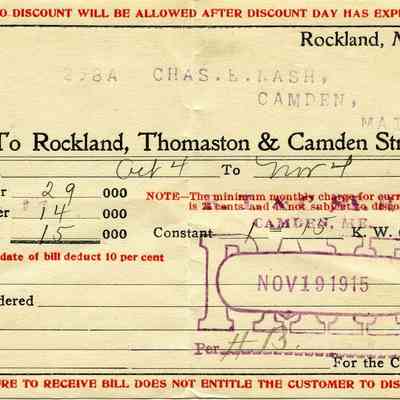 O DISCOUNT WILL BE ALLOWED AFTER DISCOUNT DAY HAS EXP
Rockland, M
298A CHAS. E. NASH,
CAMDEN,
MAI
To Rockland, Thomaston & Camden Str
Oct 4 To Nov 4
r 29 000
er 14 000
15 000
NOTE—The minimum monthly charge for curr
is cents and is not subject to disco
CAMDEN, ME.
Constant 1 - 15 K. W.
date of bill deduct 10 per cent
NOV 19 1915
dered
Per H B.
For the C
RE TO RECEIVE BILL DOES NOT ENTITLE THE CUSTOMER TO DIS